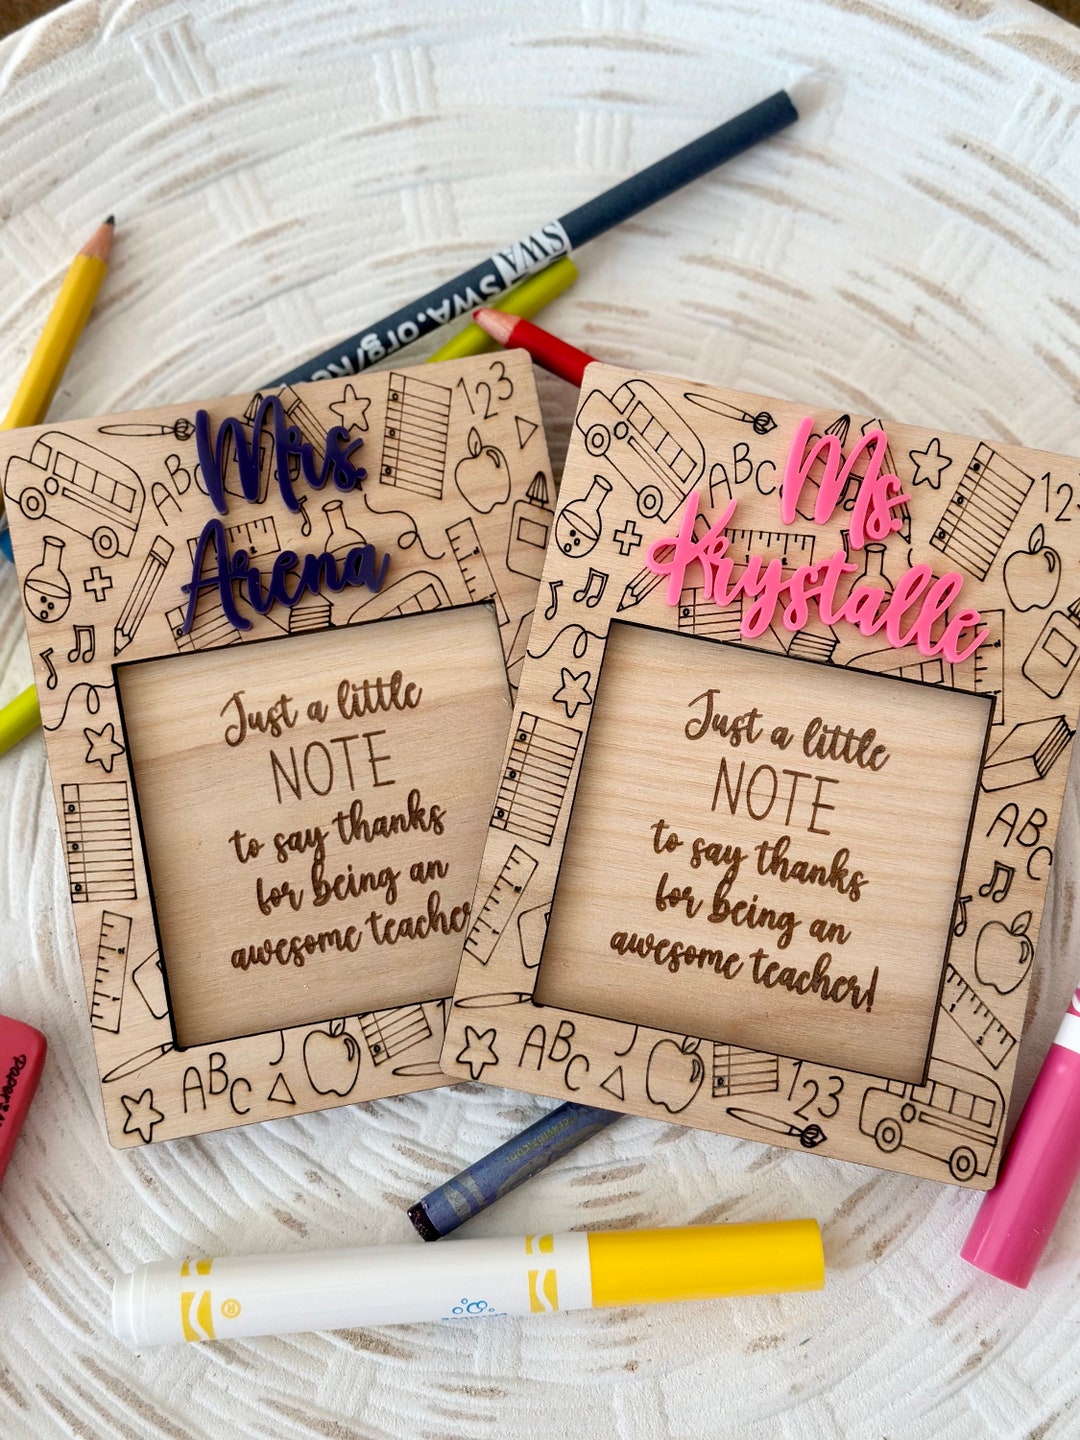 SWA
SWA.org/
123
ABC
Mrs.
Arena
Just a little
NOTE
to say thanks
for being an
awesome teacher
ABC
ABC
Ms.
Krystalle
12
Just a little
NOTE
to say thanks
for being an
awesome teacher!
ABC
ABC
123
Paper
®